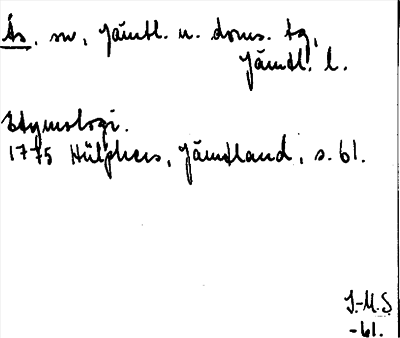 Ås, sn, Jämtl. n. doms. tg,
Jämtl. l.
Etymologi.
1775 Hülphers, Jämtland, s. 61.
J.-M.S
-61.